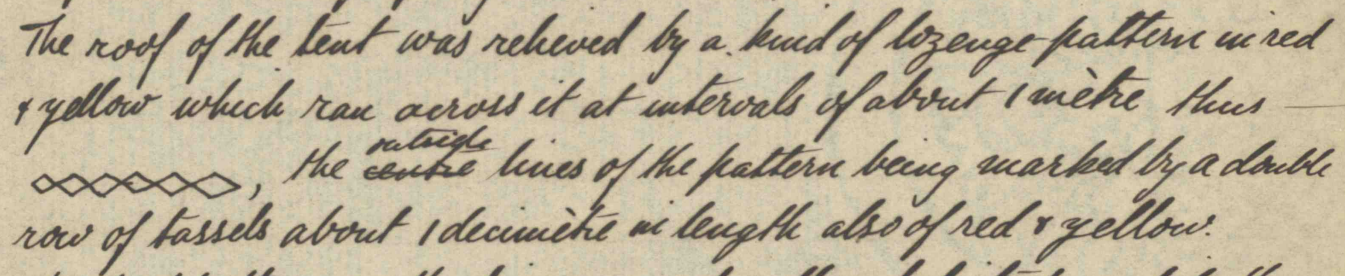 The roof of the tent was relieved by a kind of lozenge pattern in red
& yellow which ran across it at intervals of about 1 mètre thus —
, the outside centre lines of the pattern being marked by a double
row of tassels about 1 decimètre in length also of red & yellow.